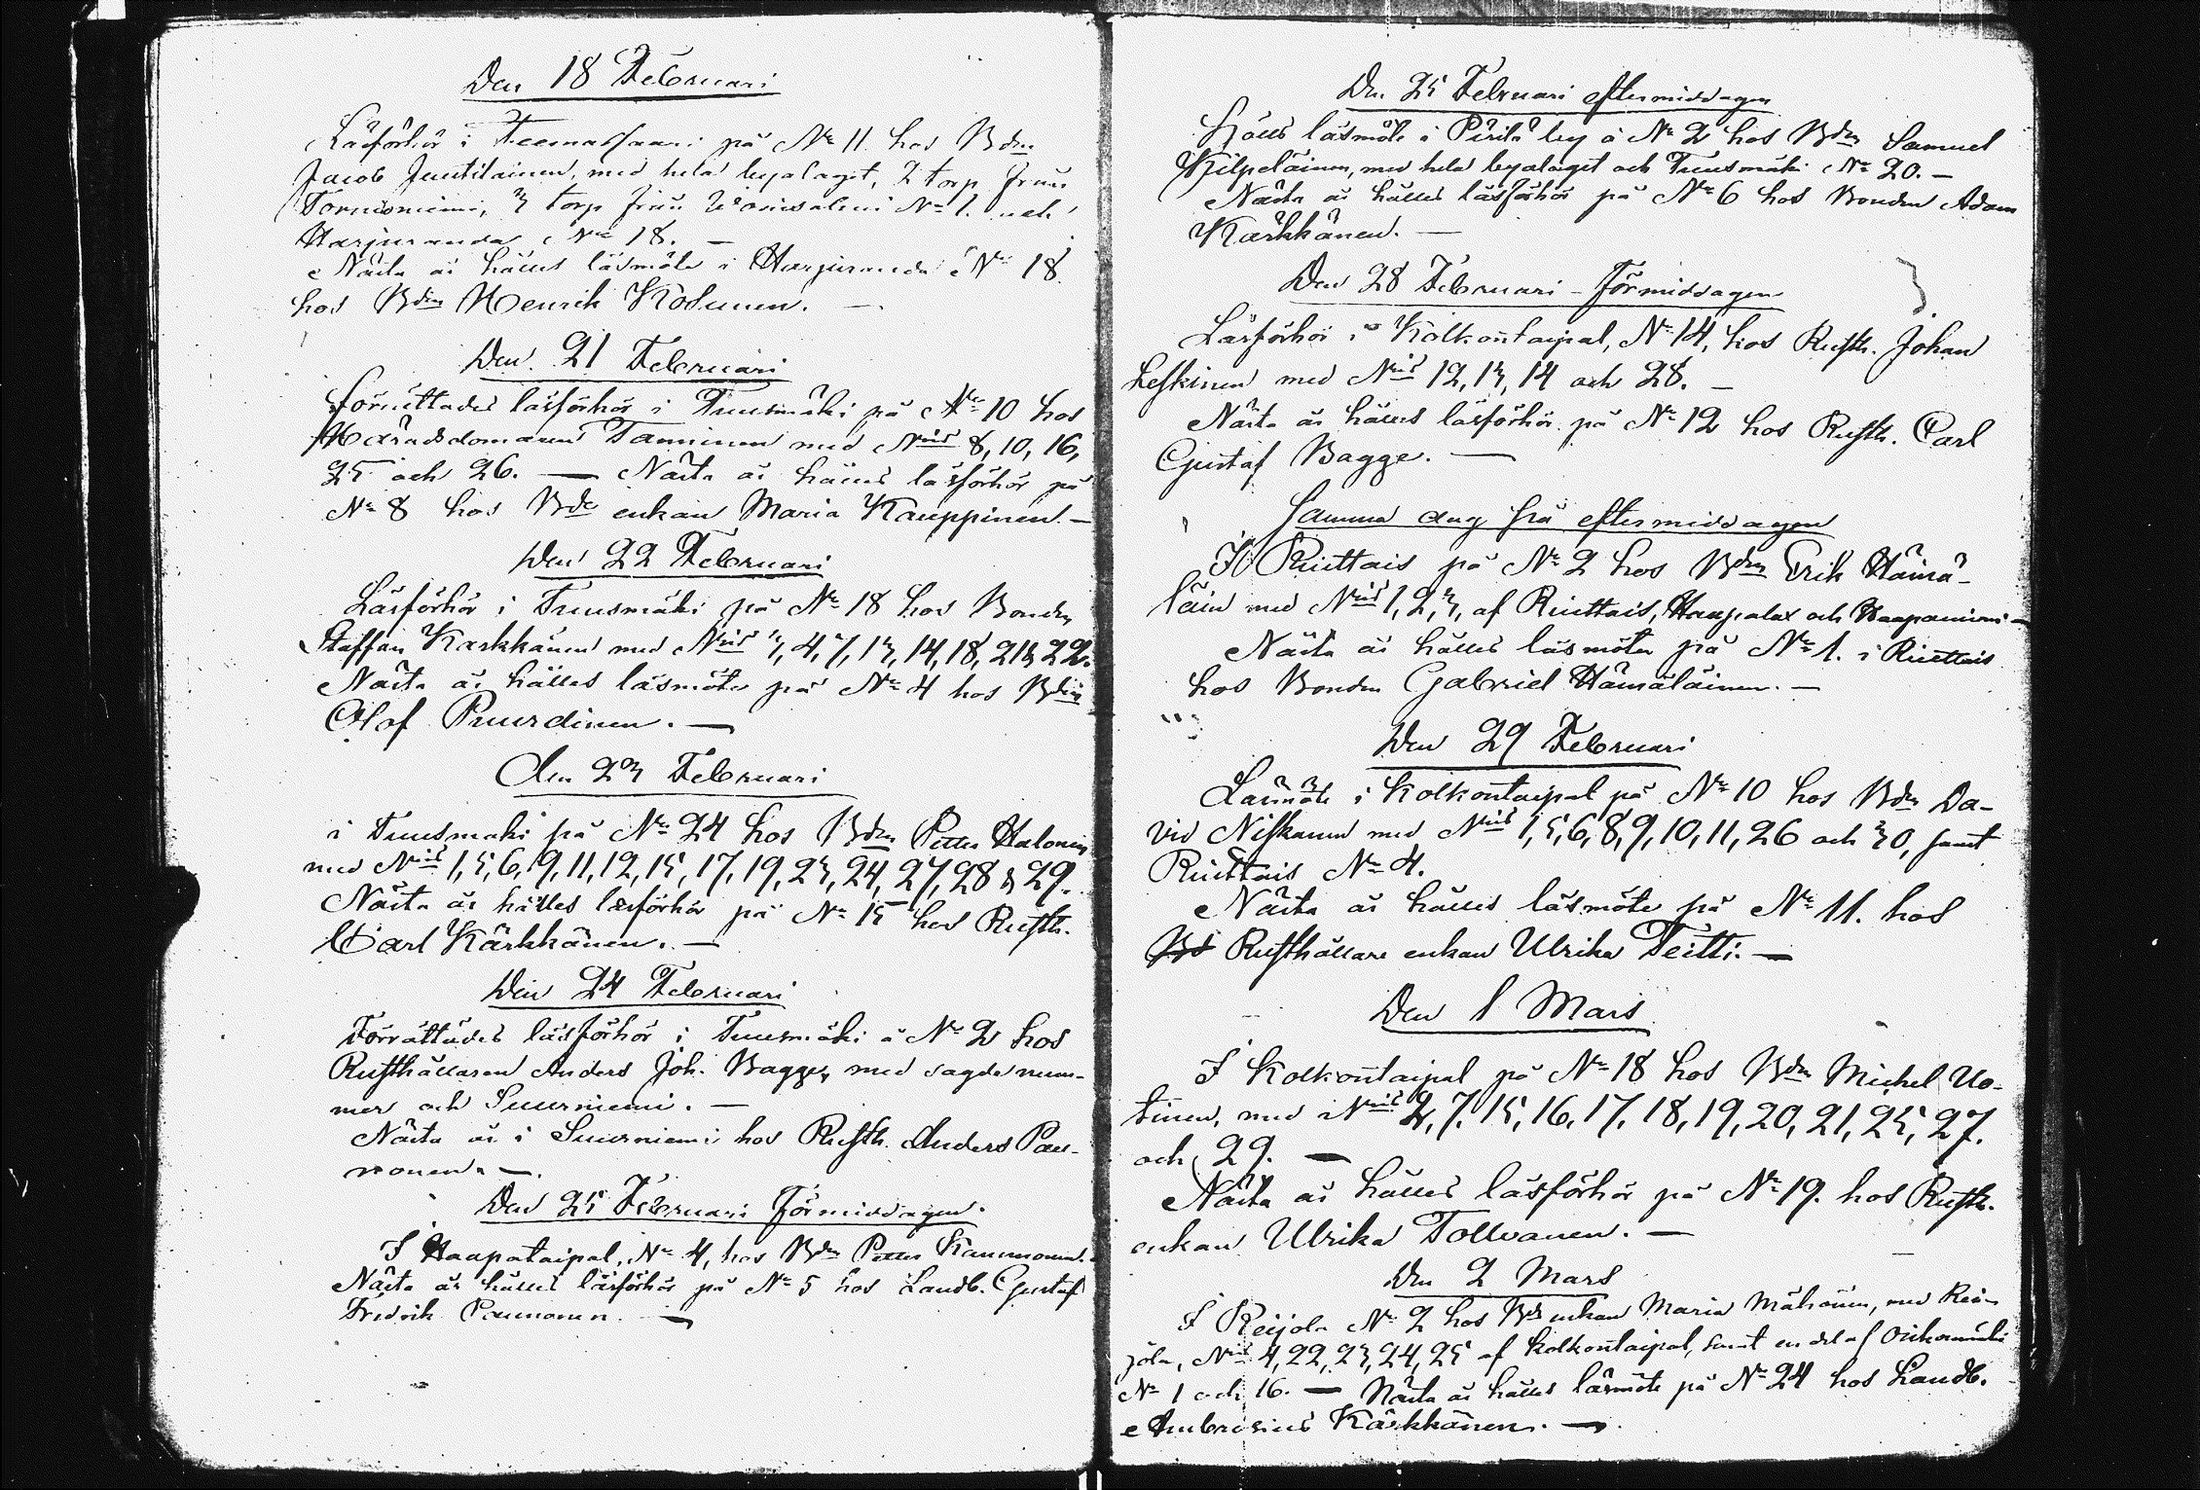 Den 18 Februari
Läsförhör i Teemassaari på No 11 hos Bdn
Jacob Juutilainen, med hela byalaget, 2 torp från
Tornioniemi, 3 torp från No 1. och
Harjuranda No 18. —
Nästa år hålles läsmöte i Harjuranda No 18
hos Bdn Henrik Kosunen. —
Den 21 Februari
Förrättades läsförhör i Tuusmäki på No 10 hos
Häradsdomaren Tanninen med Nris 8, 10, 16,
25 och 26. — Nästa år hålles läsförhör på
No 8 hos Bde enkan Maria Kauppinen. —
Den 22 Februari
Läsförhör i Tuusmäki på No 18 hos Bonden
Staffan Karkkänen med Nris 3, 4, 7, 13, 14, 18, 21 & 22.
Nästa år hålles läsmöte på No 4 hos Bdn
Olof Puurdinen. —
Den 23 Februari
i Tuusmäki på No 24 hos Bdn Petter Halonen
med Nris 1, 5, 6, 9, 11, 12, 15, 17, 19, 23, 24, 27, 28 & 29.
Nästa år hålles läsförhör på No 15 hos Rusth.
Carl Kärkkänen. —
Den 24 Februari
Förrättades läsförhör i Tuusmäki å No 2 hos
Rusthållaren Anders Joh. Bagge, med sagde num-
mer och Suurniemi. —
Nästa år i Suurniemi hos Rusth. Anders Pau-
nonen. —
Den 25 Februari förmiddagen.
I Haapataipal, No 4, hos Bdn Petter Kaunonen.
Nästa år hålles läsförhör på No 5 hos Landb. Gustaf
Fredrik Paunonen. —
Den 25 Februari eftermiddagen
Hölls läsmöte i Pirilä by å No 2 hos Bdn Samuel
Kilpeläinen, med hela byalaget och Tuusmäki No 20. —
Nästa år hålles läsförhör på No 6 hos Bonden Adam
Karkkänen. —
Den 28 Februari – förmiddagen
Läsförhör i Kolkontaipal, No 14, hos Rusth. Johan
Leskinen med Nris 12, 13, 14 och 28. —
Nästa år hålles läsförhör på No 12 hos Rusth. Carl
Gustaf Bagge. —
Samma dag på eftermiddagen
I Ruittais på No 2 hos Bdn Erik Hämä-
läin med Nris 1, 2, 3, af Ruittais, Haapalax och Haapaniemi —
Nästa år hålles läsmöte på No 1. i Ruittais
hos Bonden Gabriel Hämäläinen. —
Den 29 Februari
Läsmöte i Kolkontaipal på No 10 hos Bdn Da-
vid Niskanen med Nris 1, 5, 6, 8, 9, 10, 11, 26 och 30, samt
Ruittais No 4.
Nästa år hålles läsmöte på No 11. hos
Bd Rusthållare enkan Ulrika Teitti. —
Den 1 Mars
I Kolkontaipal på No 18 hos Bdn Michel Uo-
tinen, med Nris 2, 7, 15, 16, 17, 18, 19, 20, 21, 25, 27.
och 29. —
Nästa år hålles läsförhör på No 19. hos Rusth.
enkan Ulrika Tollvanen. —
Den 2 Mars
I Reijola No 2 hos Bds enkan Maria Mähönen, med Rei-
jola, Nris 4, 22, 23, 24, 25 af Kolkontaipal, samt en del af Orikomäki
No 1 och 16. — Nästa år hålles läsmöte på No 24 hos Landb.
Ambrosius Kärkkänen. —